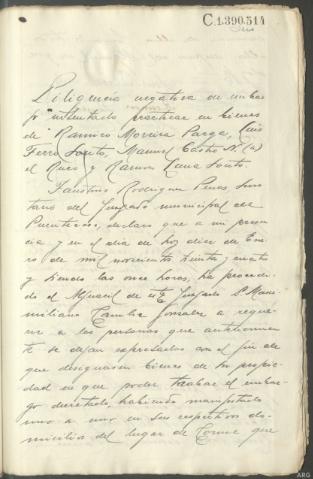 C.1.390.514
Diligencia negativa de embar
go intentado practicar en bienes
de Ramiro Moreira Parga, Luis
Ferro Souto, Manuel Castro N. (a)
el Ruco y Ramon Lema Souto.
Faustino Rodriguez Peres, Secre
tario del Juzgado municipal de
Puenteceso, declaro que a mi presen
cia y en el dia de hoy diez de Ene
ro de mil novecientos treinta y cuatro
y siendo las once horas, ha procedi
do el Alguacil de este Juzgado D. Maxi
miliano a requi
rir a las personas que anteriormen
te se dejan expresadas con el fin de
que designasen bienes de su propie
dad en que poder trabar el embar
go decretado, habiendo manifestado
uno a uno en sus respectivos do
micilios del lugar de Corme que
ARG